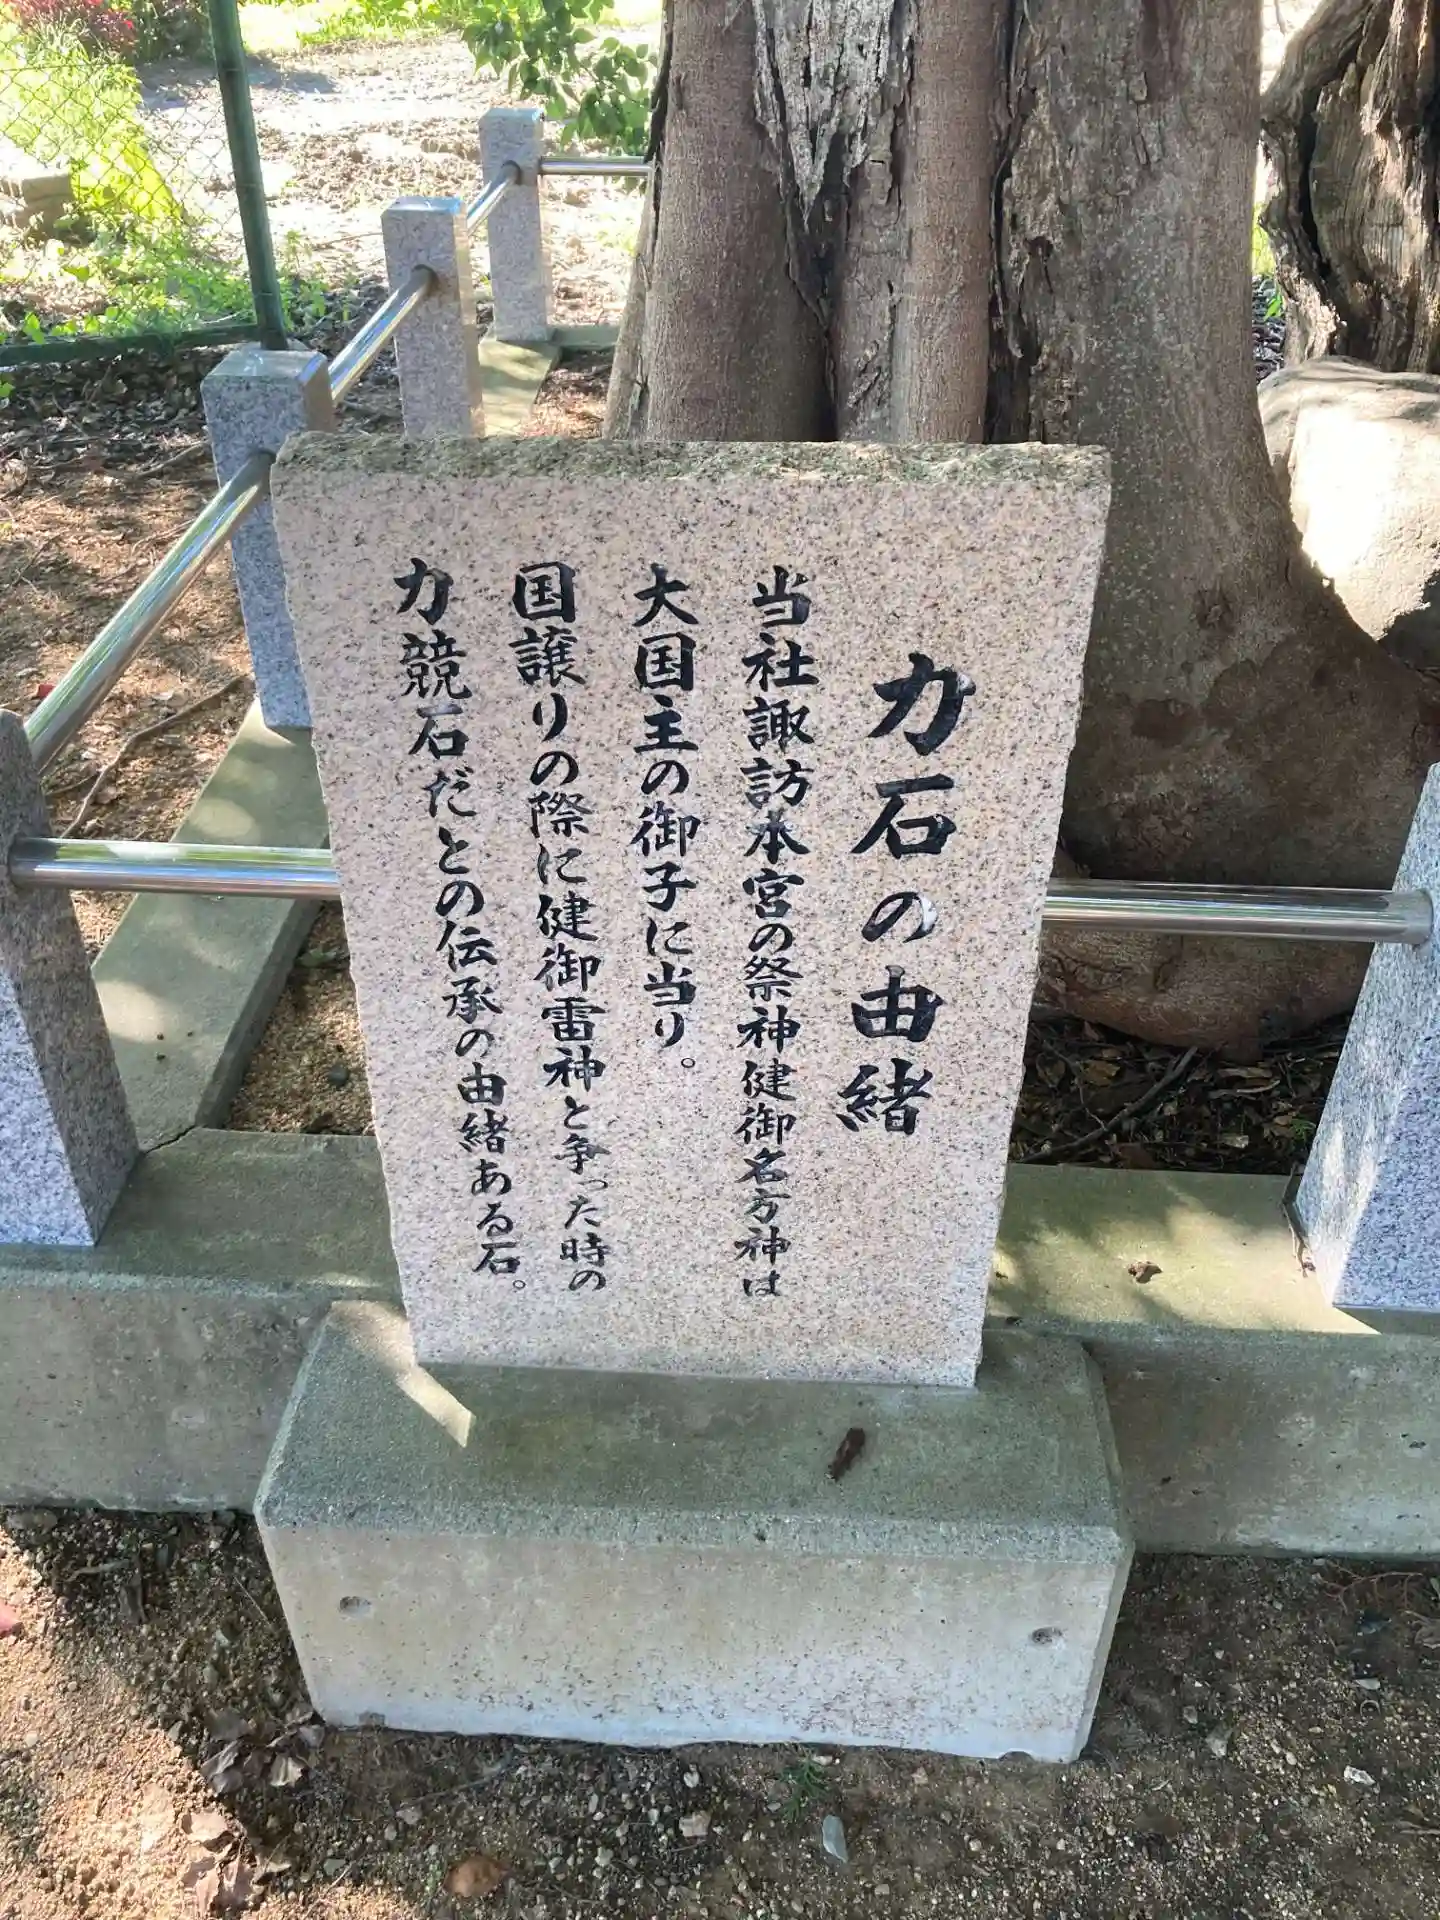 力石の由緒
当社諏訪本宮の祭神健御名方神は
大国主の御子に当り。
国譲りの際に健御雷神と争った時の
力競石だとの伝承の由緒ある石。